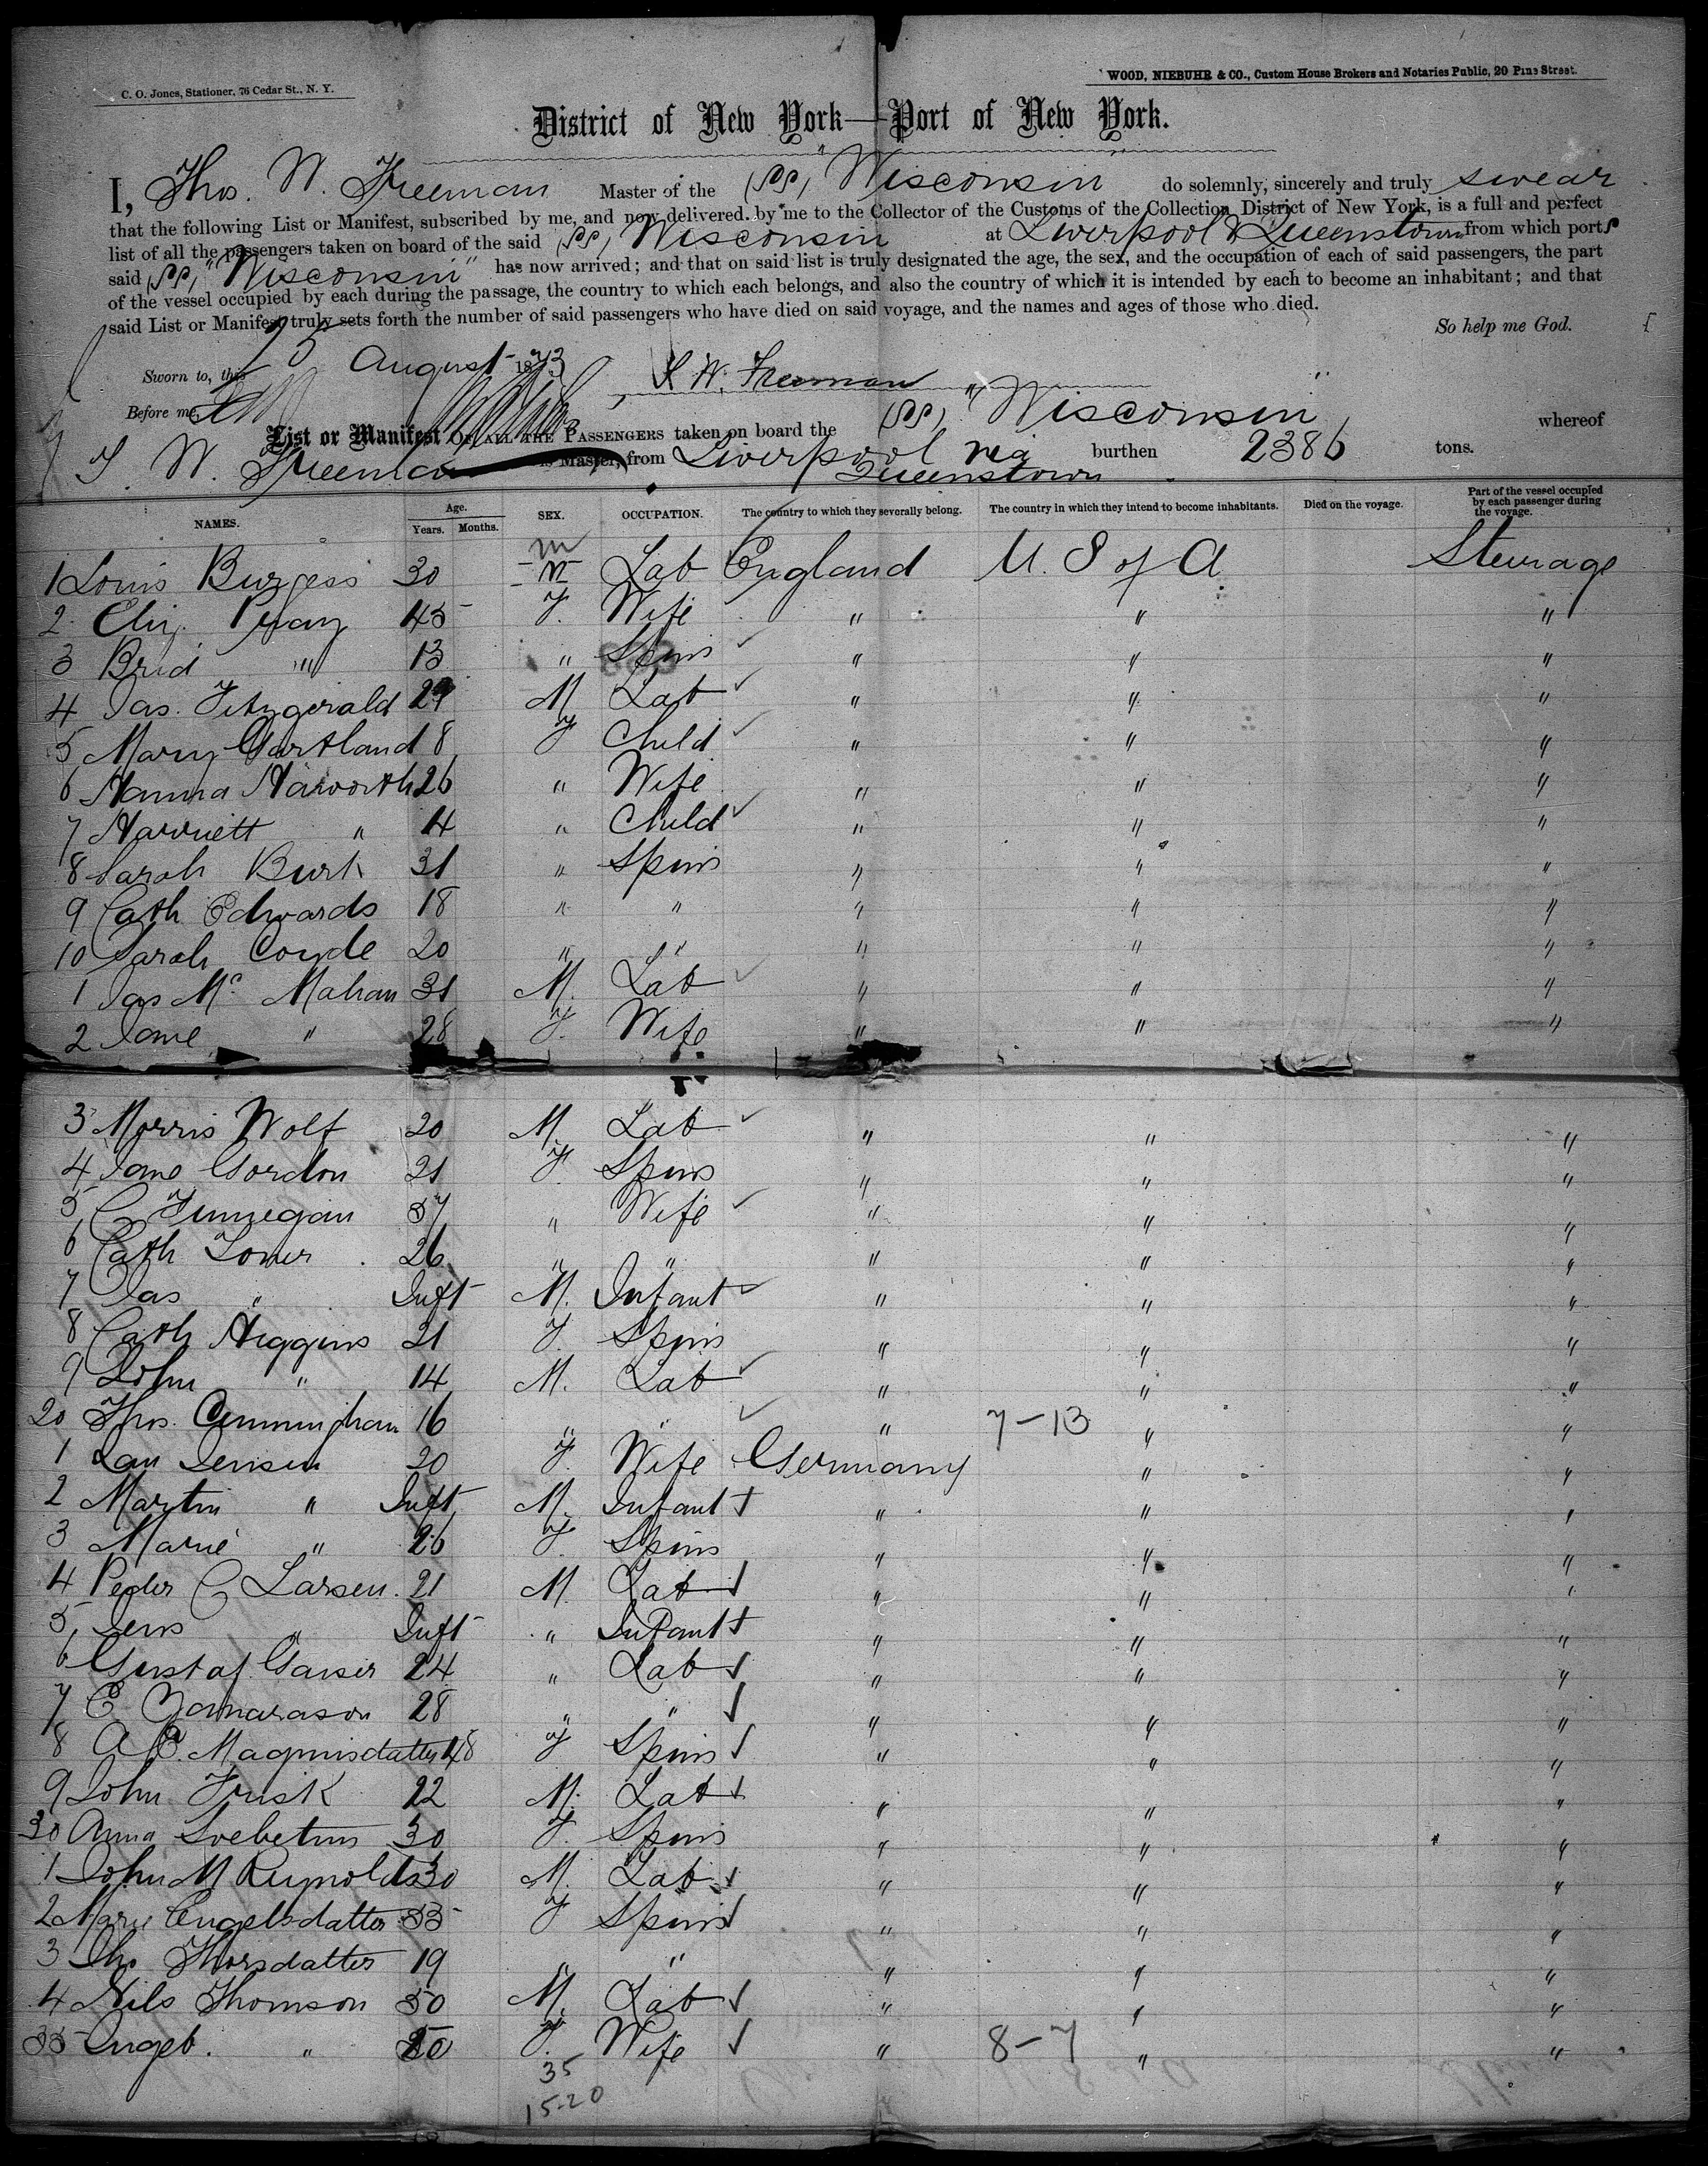 C. O. Jones, Stationer, 76 Cedar St., N. Y.
WOOD, NIEBUHR & CO., Custom House Brokers and Notaries Public, 20 Pine Street.
District of New York—Port of New York.
I, Thos. W. Freeman Master of the (SS) "Wisconsin" do solemnly, sincerely and truly swear
that the following List or Manifest, subscribed by me, and now delivered by me to the Collector of the Customs of the Collection District of New York, is a full and perfect
list of all the passengers taken on board of the said (SS) Wisconsin at Liverpool & Queenstown from which ports
said (SS) "Wisconsin" has now arrived; and that on said list is truly designated the age, the sex, and the occupation of each of said passengers, the part
of the vessel occupied by each during the passage, the country to which each belongs, and also the country of which it is intended by each to become an inhabitant; and that
said List or Manifest truly sets forth the number of said passengers who have died on said voyage, and the names and ages of those who died.
So help me God.
Sworn to, this 5 August 1873 T W. Freeman
Before me,
List or Manifest OF ALL THE PASSENGERS taken on board the (SS) "Wisconsin" whereof
T. W. Freeman is Master, from Liverpool via Queenstown burthen 2386 tons.
NAMES. Age. Years. Months. SEX. OCCUPATION. The country to which they severally belong. The country in which they intend to become inhabitants. Died on the voyage. Part of the vessel occupied by each passenger during the voyage.
1 Louis Burgess 30 M Lab England U. S of A Steerage
2 Eliz. 45 F. Wife " " "
3 Brid " 13 " Spins " " "
4 Jas. Fitzgerald 29 M Lab " " "
5 Mary Gartland 8 F Child " " "
6 Hanna Haworth 26 " Wife " " "
7 Harriett " 4 " Child " " "
8 Sarah Burk 31 " Spins " " "
9 Cath Edwards 18 " " " " "
10 Sarah Coyde 20 " " " " "
1 Jas Mc Mahan 31 M. Lab " " "
2 Jane " 28 F. Wife " " "
3 Morris Wolf 20 M Lab " " "
4 Jane Gordon 21 F. Spins " " "
5 C Finnegan 37 " Wife " " "
6 Cath 26 " " " " "
7 Jas " Inft M. Infant " " "
8 Cath Higgins 21 F. Spins " " "
9 John " 14 M. Lab " " "
20 Thos. Cunningham 16 " " " 7-13 " "
1 Lau Jensen 20 F. Wife Germany " "
2 Martin " Inft M. Infant " " "
3 Marie " 26 F. Spins " " "
4 Peder C Larsen. 21 M. Lab " " "
5 Jens " Inft " Infant " " "
6 Gustaf Ganser 24 " Lab " " "
7 E 28 " " " " "
8 A E. Magnusdatter 48 F Spins " " "
9 John Frisk 22 M. Lab " " "
30 Anna 30 F. Spins " " "
1 John M Reynolds 30 M. Lab " " "
2 Marie Engelsdatter 35 F Spins " " "
3 Thorsdatter 19 " " " " "
4 Nils Thomson 50 M. Lab " " "
35 Ingeb. " 50 F. Wife " 8-7 " "
35
15-20